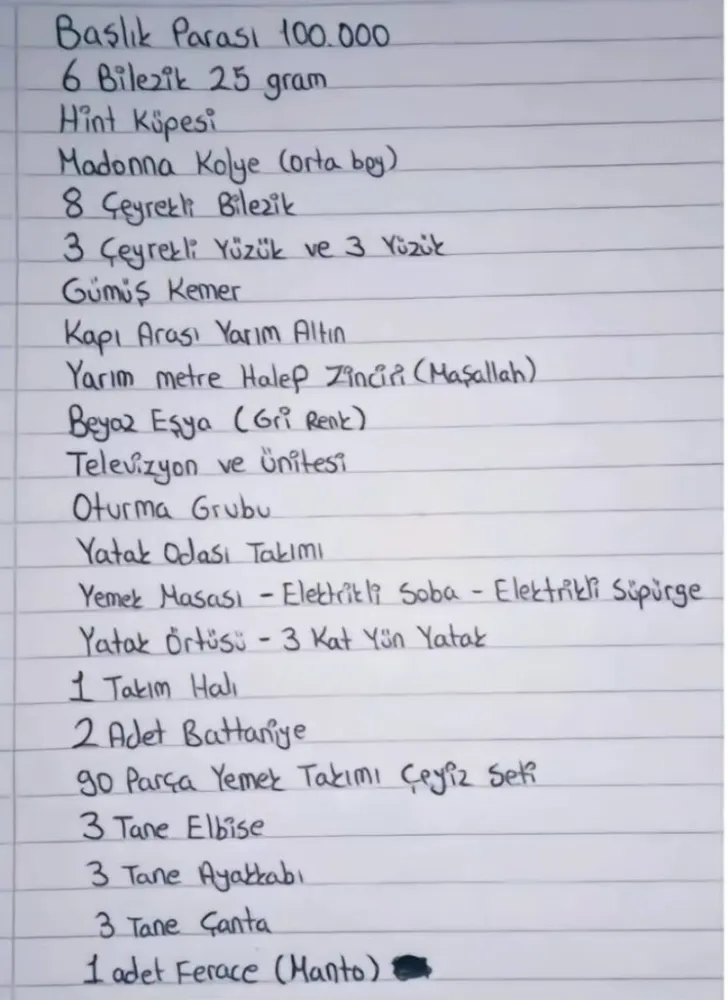 Başlık Parası 100.000
6 Bilezik 25 gram
Hint Küpesi
Madonna Kolye (orta boy)
8 Çeyrekli Bilezik
3 Çeyrekli Yüzük ve 3 Yüzük
Gümüş Kemer
Kapı Arası Yarım Altın
Yarım metre Halep Zinciri (Maşallah)
Beyaz Eşya (Gri Renk)
Televizyon ve Ünitesi
Oturma Grubu
Yatak Odası Takımı
Yemek Masası - Elektrikli Soba - Elektrikli Süpürge
Yatak Örtüsü - 3 Kat Yün Yatak
1 Takım Halı
2 Adet Battaniye
90 Parça Yemek Takımı Çeyiz Seti
3 Tane Elbise
3 Tane Ayakkabı
3 Tane Çanta
1 adet Ferace (Manto)